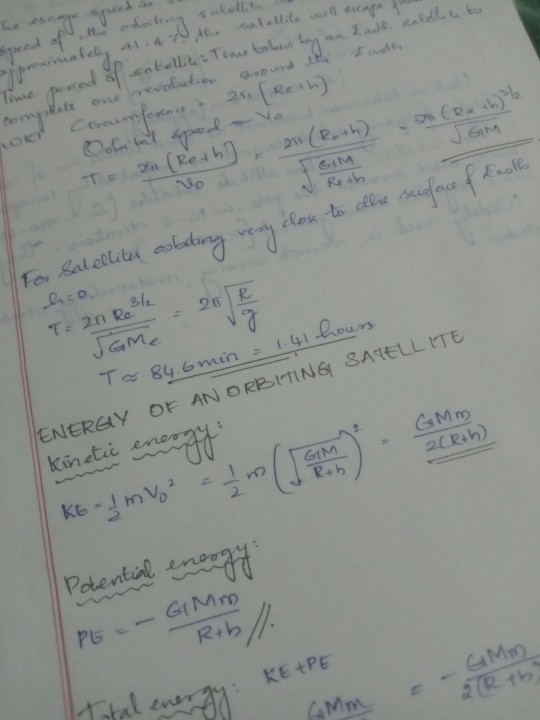 The escape speed
speed of the orbiting satellite
approximately 41.4 %, the satellite will escape from
Time period of satellite: Time taken by an Earth satellite to
complete one revolution around the Earth
WKT Circumference = 2π [Re+h]
Orbital speed — V₀
T = 2π [Re+h] / V₀ = 2π (Re+h) / √(GM / Re+h) = 2π (Re+h)^3/2 / √GM
For Satellites orbiting very close to the surface of Earth
h=0.
T = 2π Re^3/2 / √GMe = 2π √(R/g)
T ≈ 84.6 min = 1.41 hours.
ENERGY OF AN ORBITING SATELLITE
Kinetic energy:
KE = 1/2 m V₀² = 1/2 m (√(GM / R+h))² = GMm / 2(R+h)
Potential energy:
PE = - GMm / R+h //.
Total energy: KE+PE
GMm = - GMm / 2(R+h)